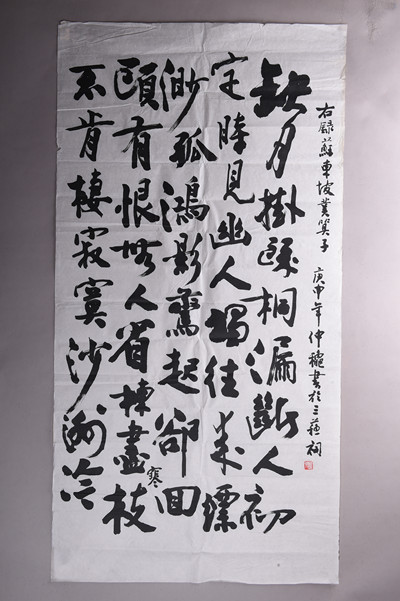 缺月掛疎桐漏斷人初
定時見幽人獨往來縹
渺孤鴻影驚起卻回
頭有恨無人省揀盡寒枝
不肯棲寂寞沙洲冷
右錄蘇東坡算子 庚申年仲穐書於三蘇祠